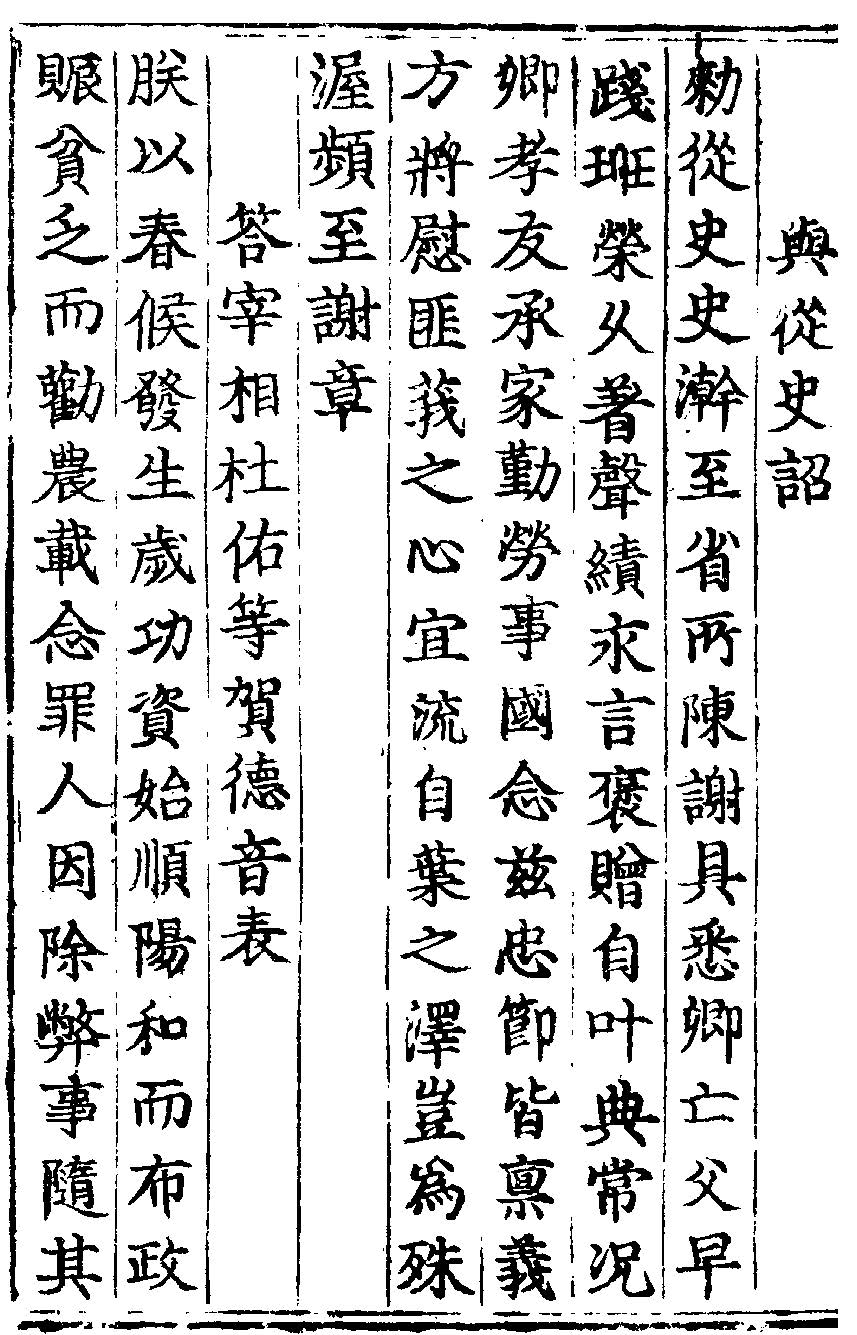 與從史詔
勑從史史瀚至省所陳謝具悉卿亡父早
踐班榮乆著聲績永言褒贈自叶典常况
卿孝友承家勤勞事國念兹忠節皆稟義
方將慰匪莪之心宜流自葉之澤豈為殊
渥頻至謝章
答宰相杜佑等賀德音表
朕以春候發生歲功資始順陽和而布政
賑貧乏而勸農載念罪人因除弊事隨其